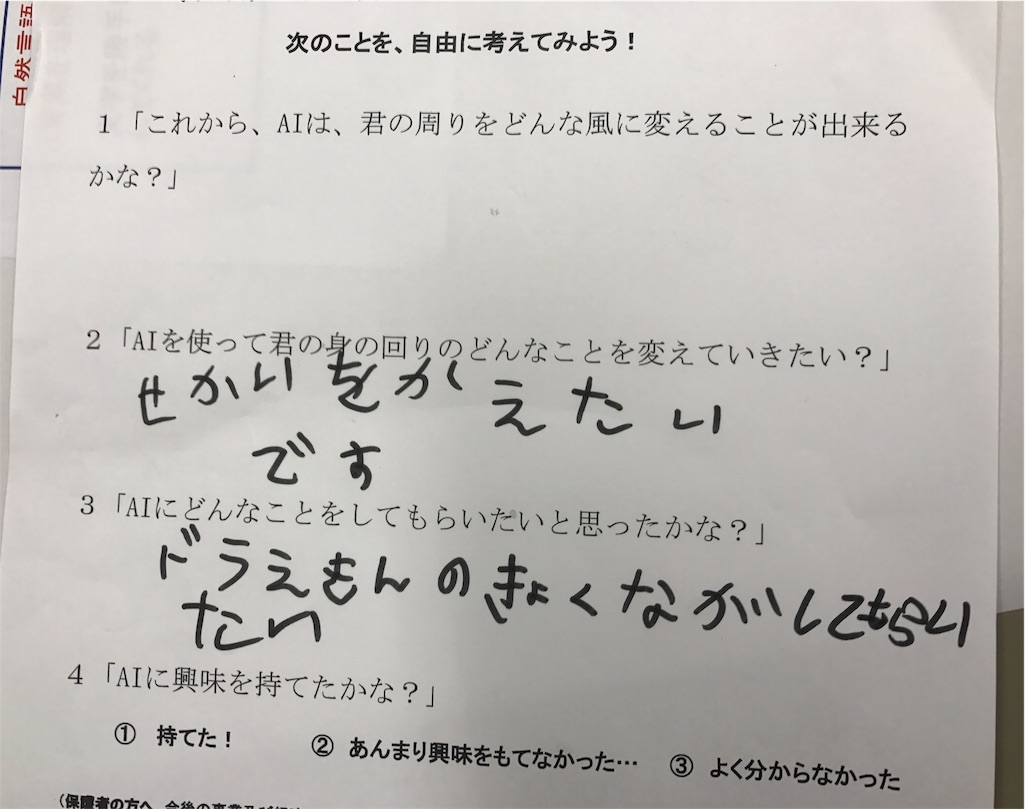 自然言語
次のことを、自由に考えてみよう！
1「これから、AIは、君の周りをどんな風に変えることが出来る
かな？」
2「AIを使って君の身の回りのどんなことを変えていきたい？」
せかいをかえたい
です
3「AIにどんなことをしてもらいたいと思ったかな？」
ドラえもんのきょくながしてもらい
たい
4「AIに興味を持てたかな？」
① 持てた！ ② あんまり興味をもてなかった… ③ よく分からなかった
（保障者の方へ 今後の事業及び